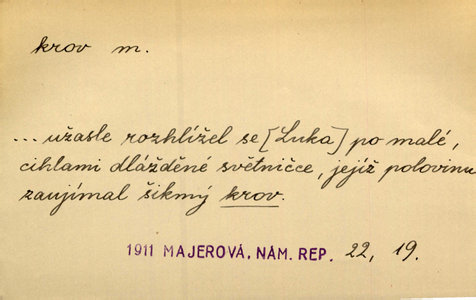 krov m.
... užasle rozhlížel se [Luka] po malé,
cihlami dlážděné světničce, jejíž polovinu
zaujímal šikmý krov.
1911 MAJEROVÁ, NÁM. REP. 22, 19.